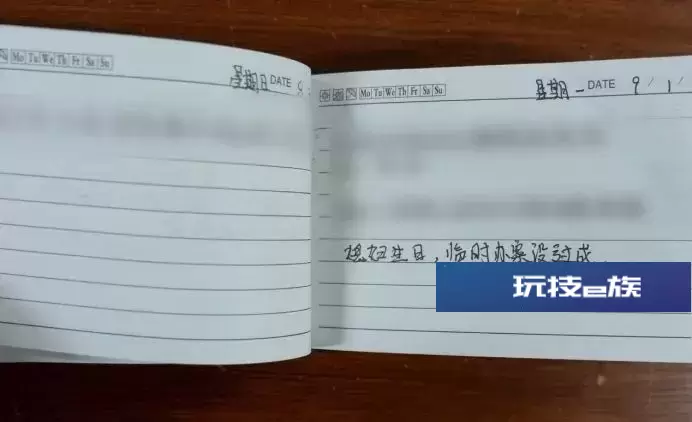 Mo Tu We Th Fr Sa Su
星期日 DATE
Mo Tu We Th Fr Sa Su
星期一 DATE 9/1/
媳妇生日,临时办案没过成
玩技e族